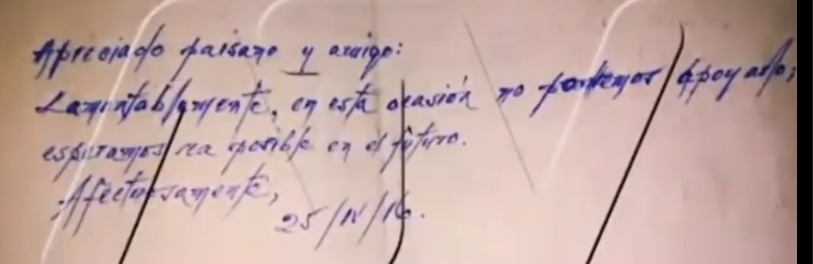 Apreciado paisano y amigo:
Lamentablemente, en esta ocasión no podemos apoyarlo,
esperamos sea posible en el futuro.
Afectuosamente,
25/IV/16.